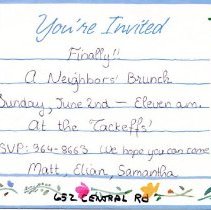 You're Invited
Finally!!
A Neighbors' Brunch
Sunday, June 2nd — Eleven a.m.
At the Tackeffs'
RSVP: 364-8663 (We hope you can come
Matt, Elian, Samantha
652 CENTRAL RD